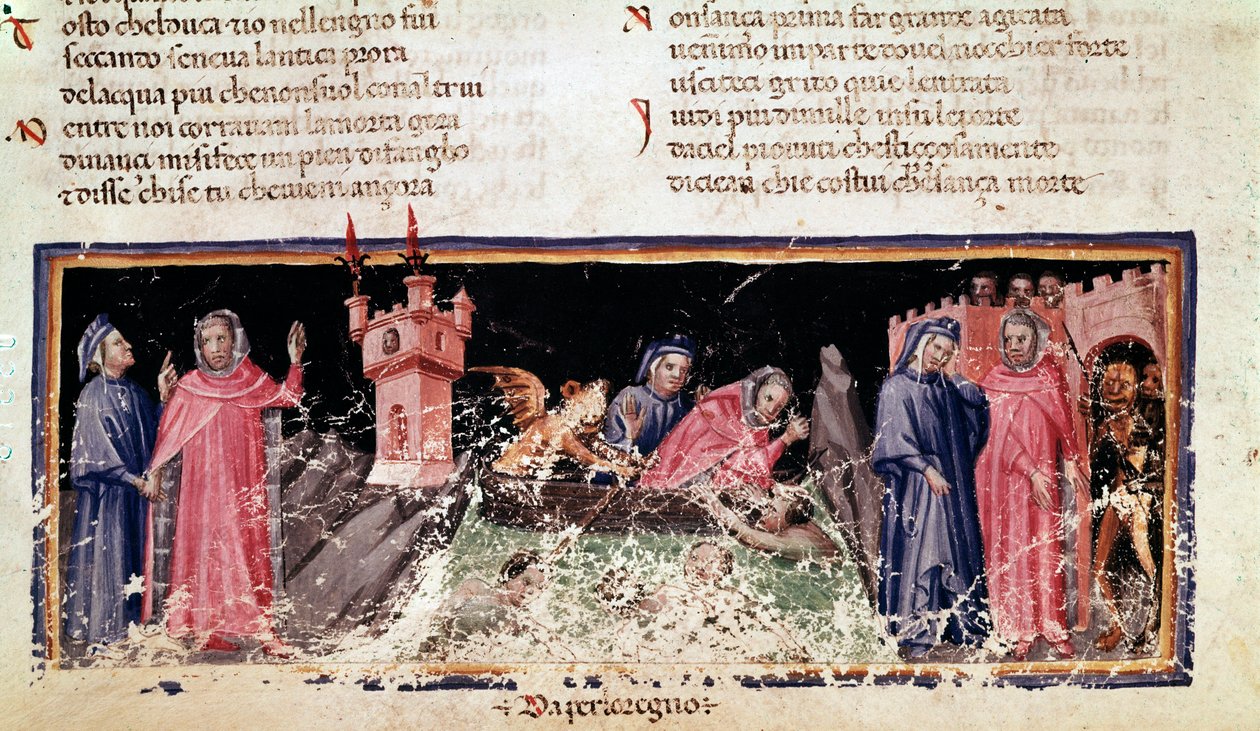 osto chelouca ⁊io nellengno fui
seccando seneua lantica prora
delacqua piu chenonsuol conaltrui
N entre noi corrauam lamorta gora
dinanci misifece un pien difangho
⁊disse chise tu cheuieni anzora
N onsança prima far grante agirata
uenimo inparte doue lnocchier forte
usciteci grito quie lentrata
I uidi piu dimille insu leporte
daciel piouuti chesticçosamente
dicieam chie costui chesança morte